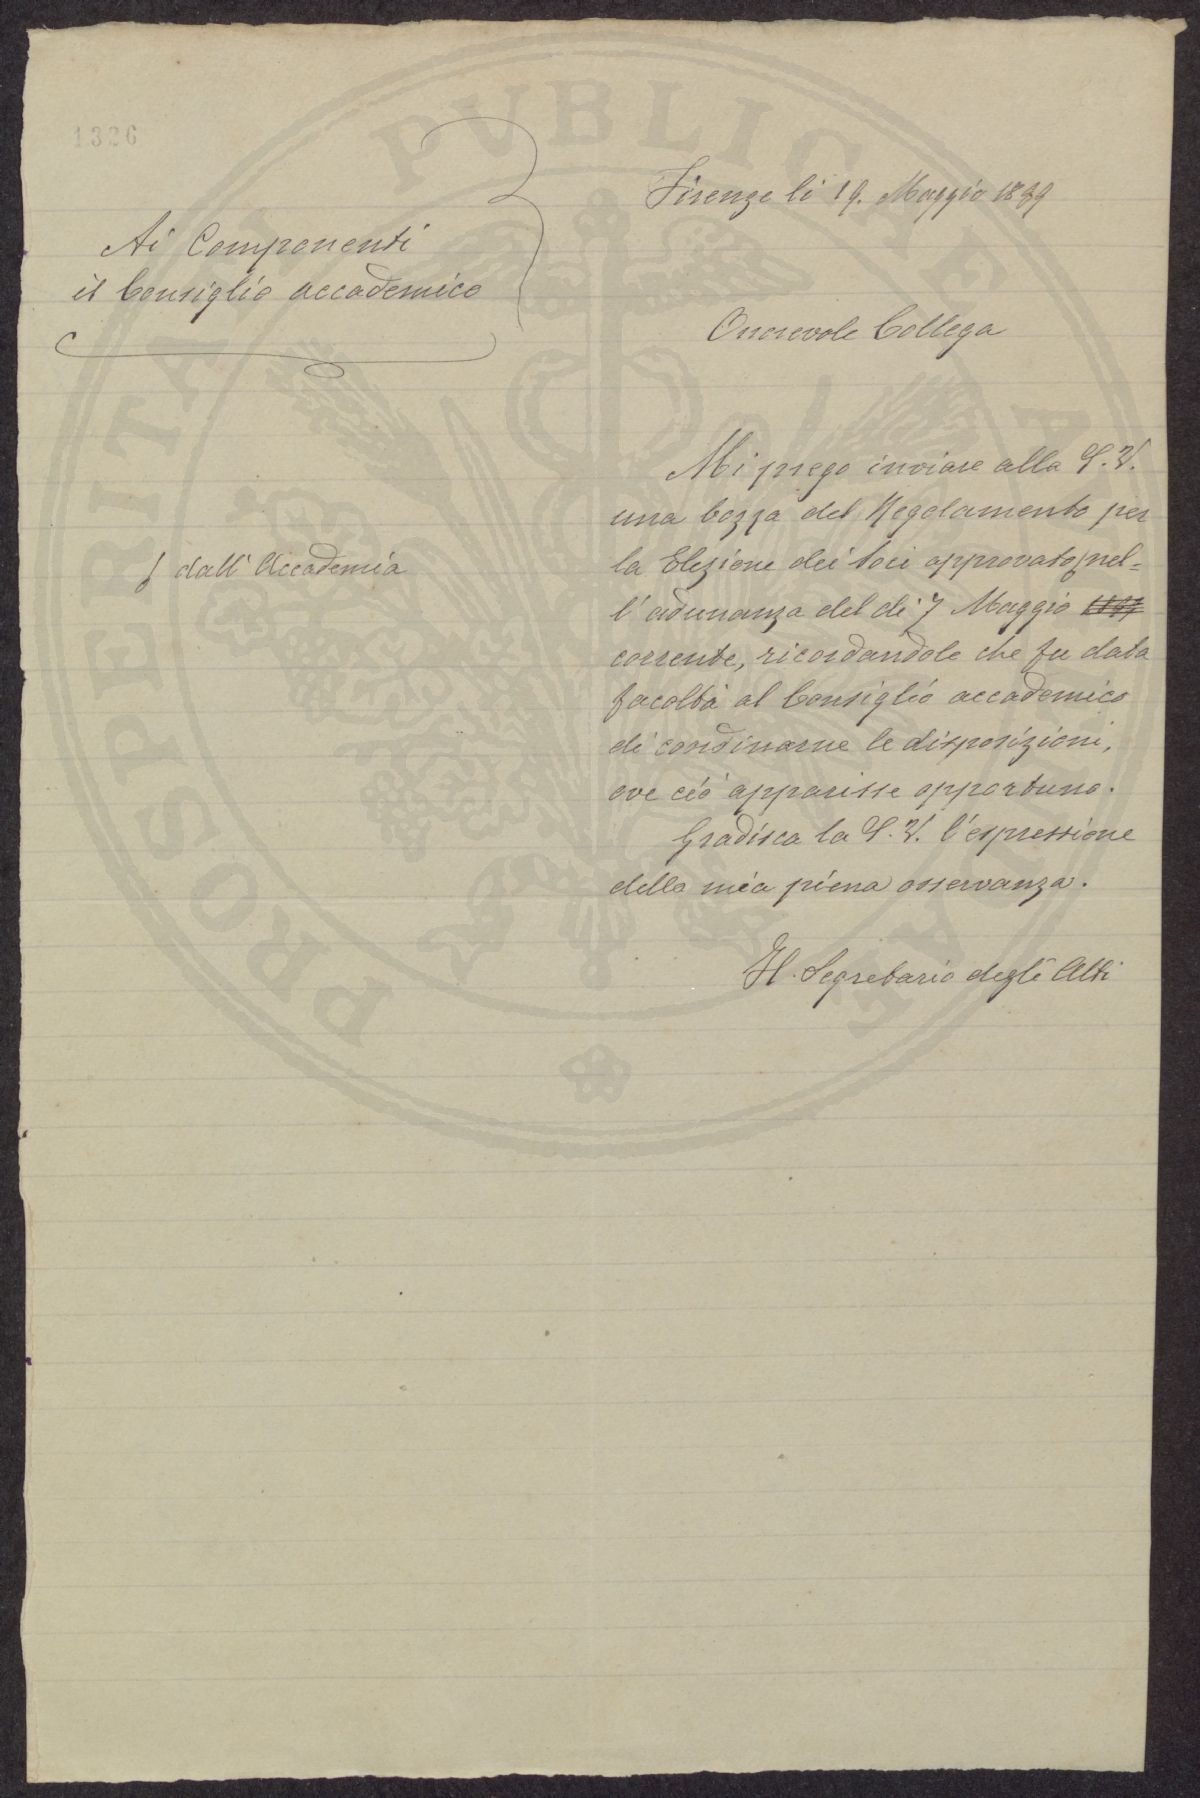 1326
Firenze li 19. Maggio 1889
Ai Componenti
il Consiglio accademico
Onorevole Collega
Mi prego inviare alla S. V.
una bozza del Regolamento per
la Elezione dei Soci approvato nel-
dall'Accademia
l'adunanza del dì 7 Maggio
corrente, ricordandole che fu data
facoltà al Consiglio accademico
di coordinarne le disposizioni,
ove ciò apparisse opportuno.
Gradisca la S. V. l'espressione
della mia piena osservanza.
Il Segretario degli Atti
PROSPERITATI PUBLICAE AUGENDAE